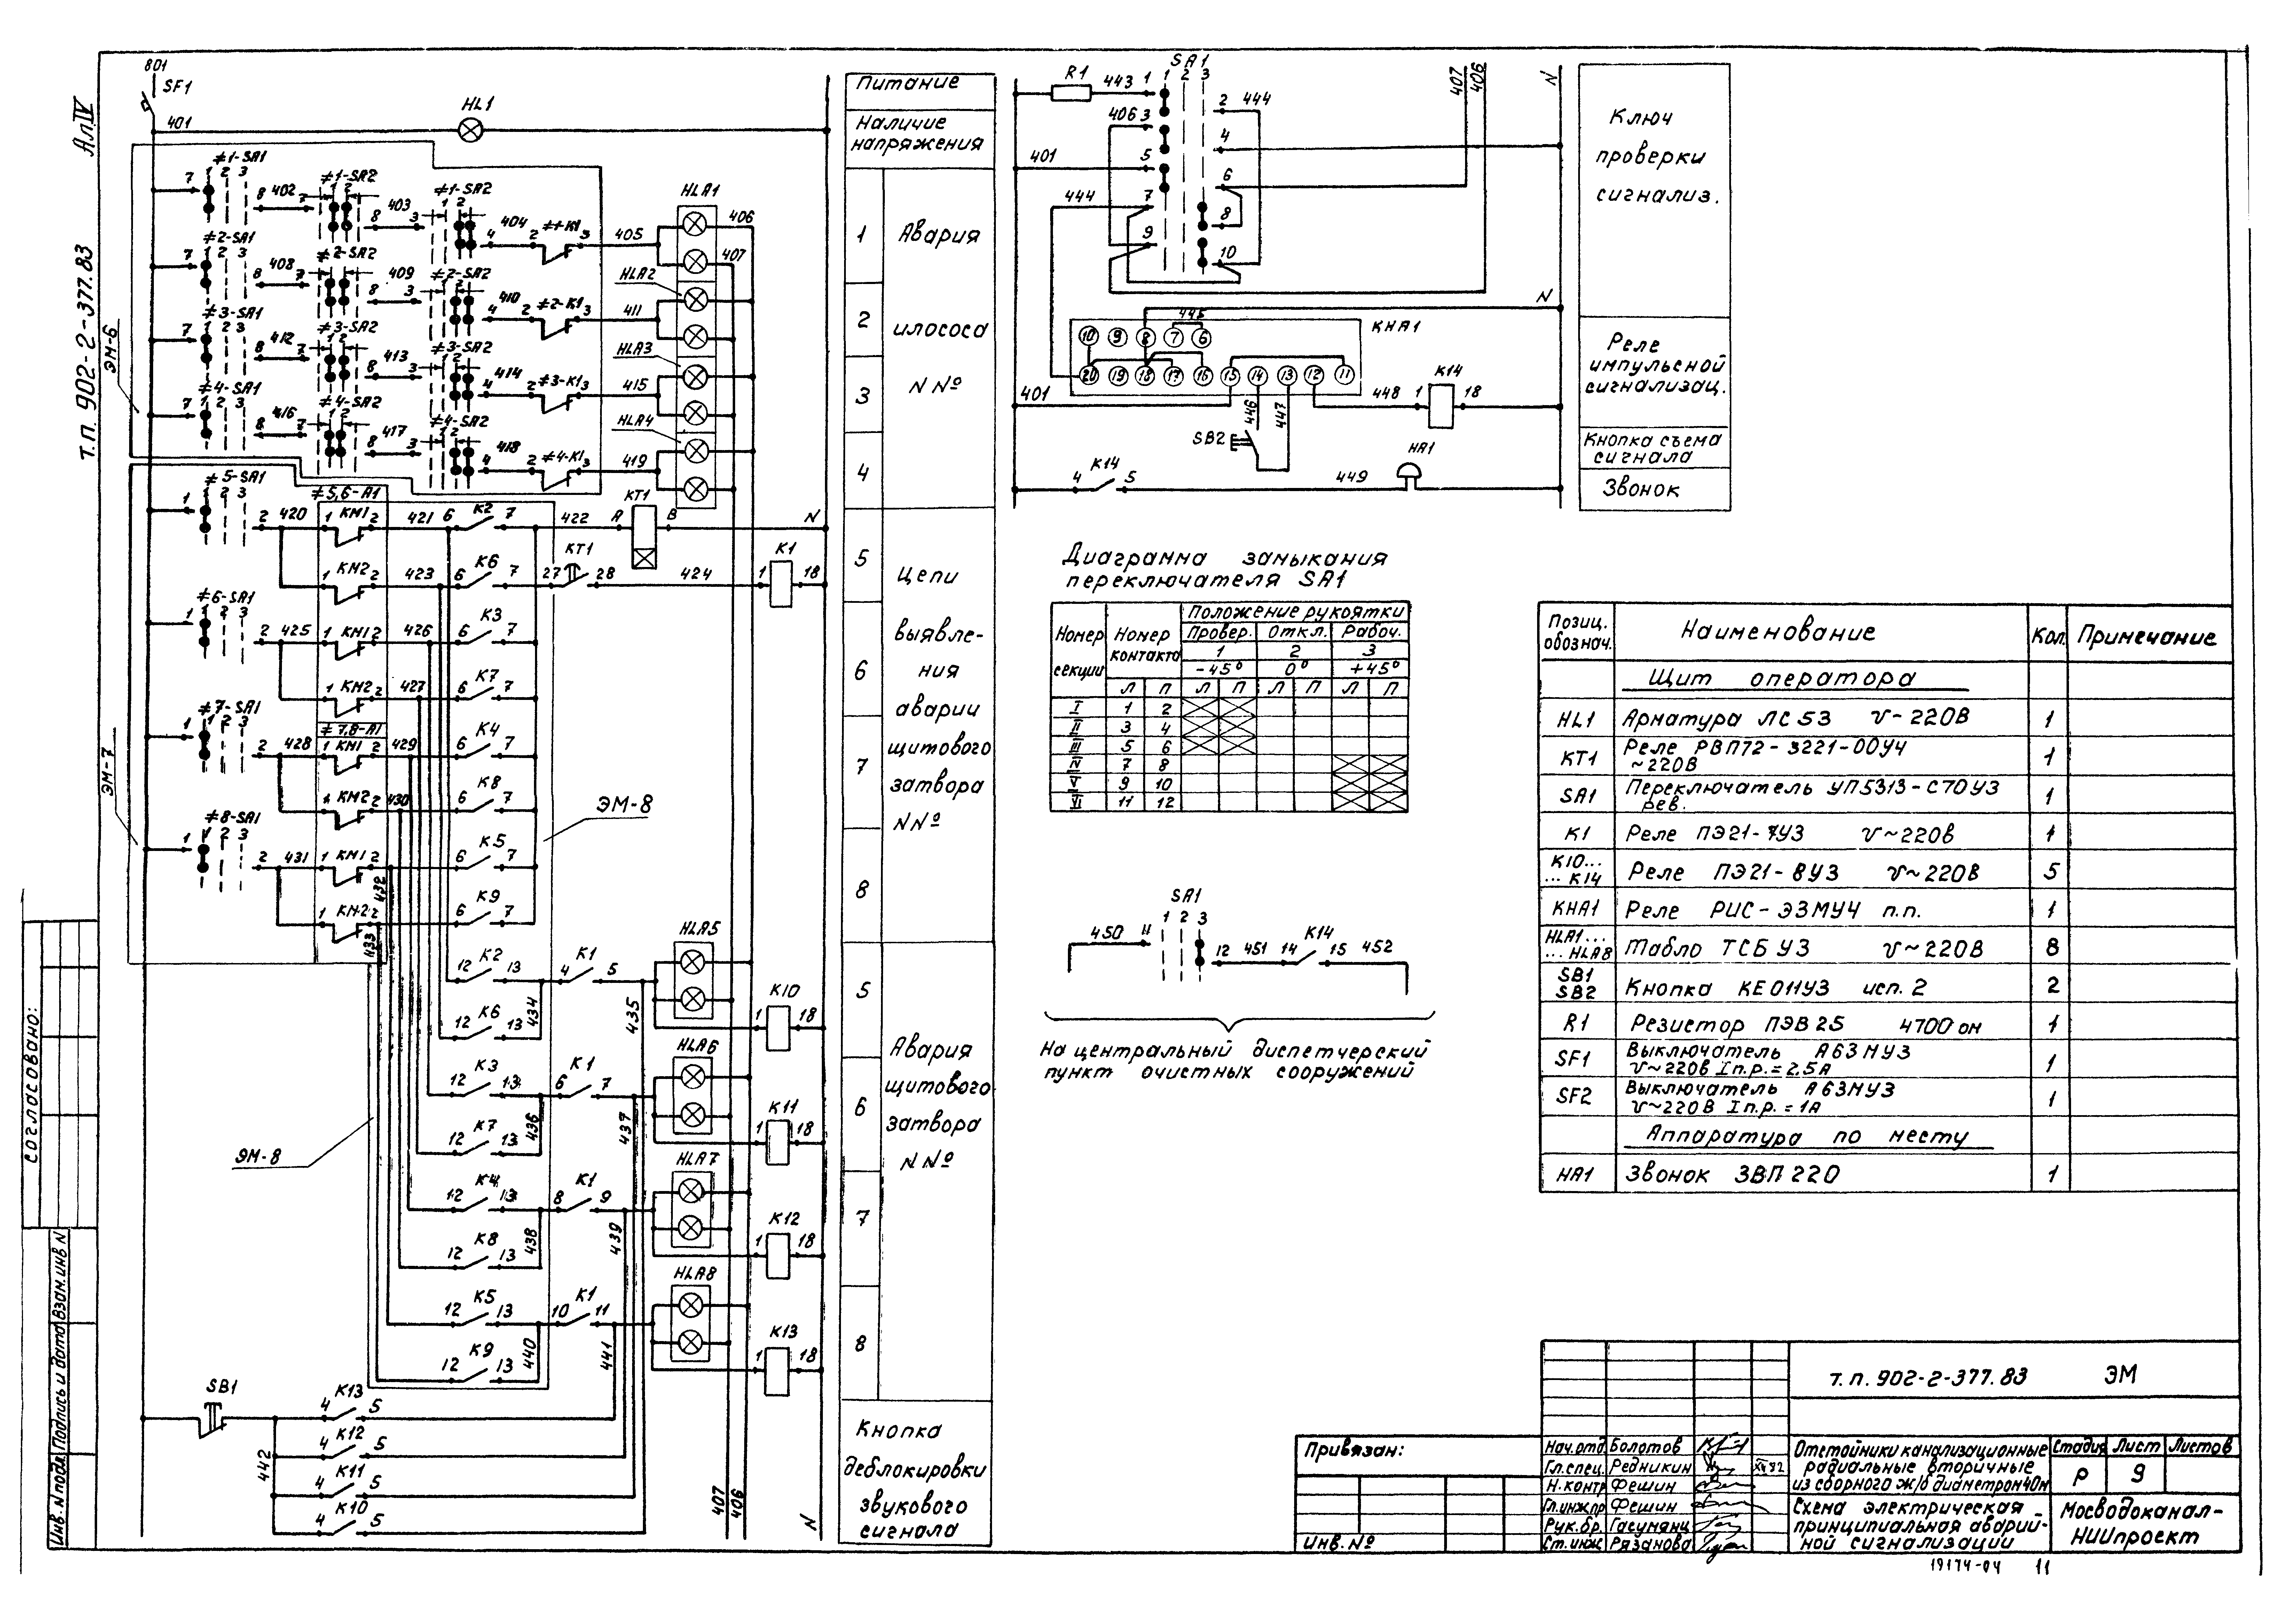 АлIV
т.п. 902-2-377.83
801
SF1
401
HL1
ЭМ-6
≠1-SA1
1 2 3
7
8 402 7
≠1-SA2
1 2
8 403 3
≠1-SA2
1 2
4 404 2 ≠1-К1 3
405
HLA1
406
407
≠2-SA1
2 3
7
8 408 7
≠2-SA2
8 409 3
≠2-SA2
4 410 2 ≠2-К1 3
411
HLA2
≠3-SA1
2 3
7
8 412 7
≠3-SA2
1 2
8 413 3
≠3-SA2
4 414 2 ≠3-К1 3
415
HLA3
≠4-SA1
2 3
7
8 416 7
≠4-SA2
1 2
8 417 3
≠4-SA2
1 2
4 418 2 ≠4-К1 3
419
HLA4
≠5-SA1
1 2 3
1
2 420
≠5,6-А1
1 КМ1 2 421 6 К2 7 422 А КТ1 В N
1 КМ2 2 423 6 К6 7 27 КТ1 28 424 1 К1 18
≠6-SA1
1 2 3
1
2 425 1 КМ1 2 426 6 К3 7
1 КМ2 2 427 6 К7 7
≠7-SA1
1 2 3
1
≠7,8-А1
2 428 1 КМ1 2 429 6 К4 7
1 КМ2 2 430 6 К8 7
ЭМ-7
ЭМ-8
≠8-SA1
1 2 3
1
2 431 1 КМ1 2 432 6 К5 7
1 КМ2 2 433 6 К9 7
12 К2 13 434 4 К1 5 435 HLA5 1 К10 18
12 К6 13
12 К3 13 436 6 К1 7 437 HLA6 1 К11 18
12 К7 13
12 К4 13 438 8 К1 9 439 HLA7 1 К12 18
12 К8 13
12 К5 13 440 10 К1 11 441 HLA8 1 К13 18
12 К9 13
ЭМ-8
SB1
442
4 К13 5
4 К12 5
4 К11 5
4 К10 5
407
406
N
Питание
Наличие
напряжения
1
2
3
4
Авария
илососа
NNº
5
6
7
8
Цепи
выявле-
ния
аварии
щитового
затвора
NNº
5
6
7
8
Авария
щитового
затвора
NNº
Кнопка
деблокировки
звукового
сигнала
R1
443
SA1
1 2 3
1
2 444
406 3
4
401
5
6
444
7
8
9
10
407
406
N
N
KHA1
445
10 9 8 7 6
20 19 18 17 16 15 14 13 12 11
401
446
447
448
1 К14 18
SB2
4 К14 5
449
HA1
Ключ
проверки
сигнализ.
Реле
импульсной
сигнализац.
Кнопка съема
сигнала
Звонок
Диаграмма замыкания
переключателя SA1
Номер секции
Номер контакта
Положение рукоятки
Провер. Откл. Рабоч.
1 2 3
-45° 0° +45°
Л П Л П Л П Л П
I 1 2
II 3 4
III 5 6
IV 7 8
V 9 10
VI 11 12
SA1
1 2 3
450 11
12 451 14 К14 15 452
На центральный диспетчерский
пункт очистных сооружений
Позиц. обознач. Наименование Кол. Примечание
Щит оператора
HL1 Арматура ЛС53 v-220В 1
КТ1 Реле РВП72-3221-00У4
~220В 1
SA1 Переключатель УП5313-С70У3
рев. 1
К1 Реле ПЭ21-7У3 v~220в 1
К10...
...К14 Реле ПЭ21-8У3 v~220В 5
KHA1 Реле РИС-Э3МУ4 п.п. 1
HLA1...
...HLA8 Табло ТСБ У3 v~220В 8
SB1
SB2 Кнопка КЕ011У3 исп. 2 2
R1 Резистор ПЭВ25 4700 ом 1
SF1 Выключатель А63МУ3
v~220В Iп.р.=2,5А 1
SF2 Выключатель А63МУ3
v~220В Iп.р.=1А 1
Аппаратура по месту
HA1 Звонок ЗВП 220 1
согласовано:
Взам. инв N
Подпись и дата
Инв. N подл.
Привязан:
Инв. Nº
Нач.отд. Болотов
Гл.спец. Редникин XII 82
Н.контр Фешин
Гл.инж.пр Фешин
Рук.бр. Гасумянц
Ст.инж. Рязанова
т.п. 902-2-377.83 ЭМ
Отстойники канализационные
радиальные вторичные
из сборного ж/б диаметром 40м
Стадия Лист Листов
Р 9
Схема электрическая
принципиальная аварий-
ной сигнализации
Мосводоканал-
НИИпроект
19174-04 11